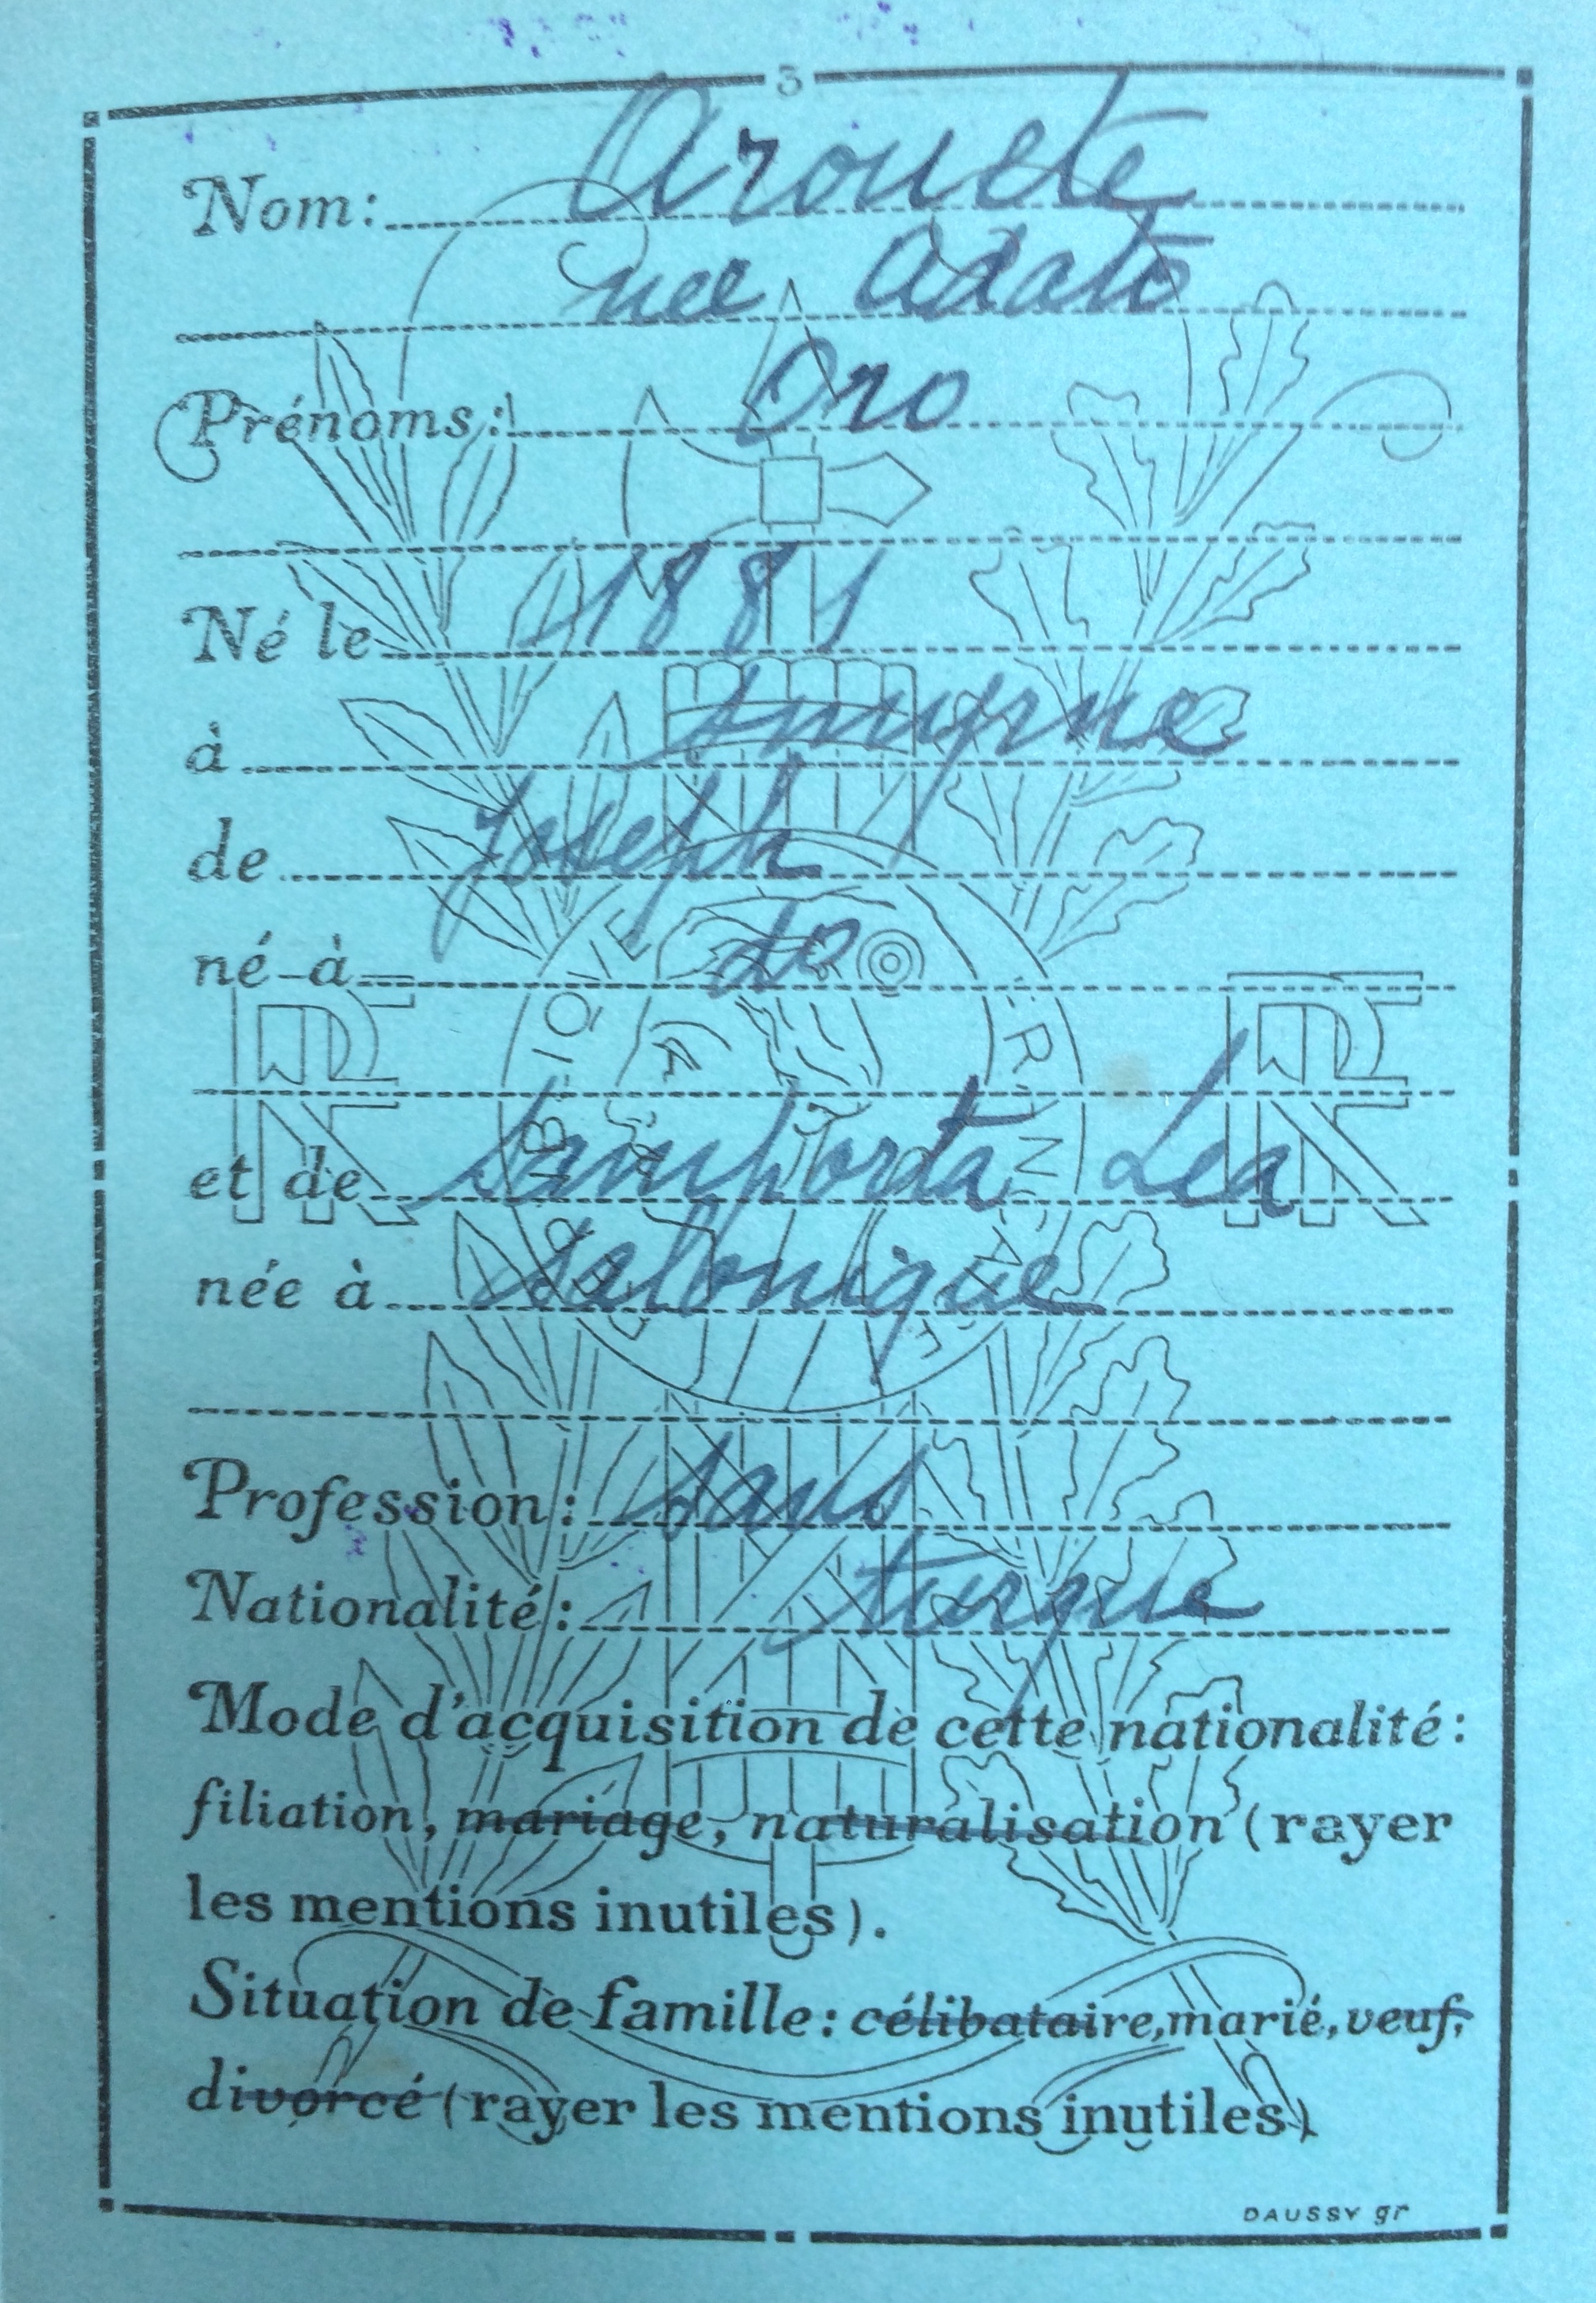 3
Nom: Arouete
née Adato
Prénoms: Oro
Né le 1881
à Smyrne
de Joseph
né à do
et de Samporta Lea
née à Salonique
Profession: sans
Nationalité: turque
Mode d'acquisition de cette nationalité:
filiation, mariage, naturalisation (rayer
les mentions inutiles).
Situation de famille: célibataire, marié, veuf,
divorcé (rayer les mentions inutiles)
DAUSSY gr
RF RF